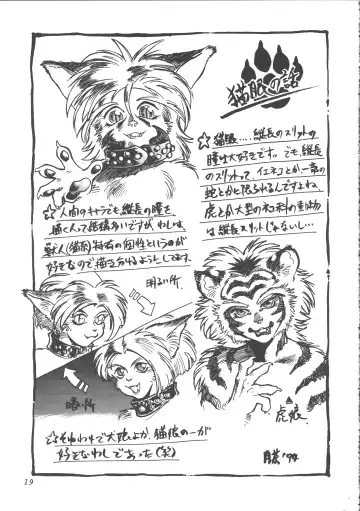 猫眼の話
☆猫眼.....縦長のスリットの
瞳は大好きです。でも、縦長
のスリットって、イエネコとか一部の
蛇とかに限られるんですよね
虎とか大型のネコ科の動物
は縦長スリットじゃないし…
☆人間のキャラでも縦長の瞳を
描く人って結構多いですが、わしは
獣人(猫族)特有の個性というのが
好きなので描き分けるようにしてます。
明るい所
暗い所
虎娘
☆それゆえで犬娘よか、猫娘の一が
好きなわしであった(笑)
'94
19